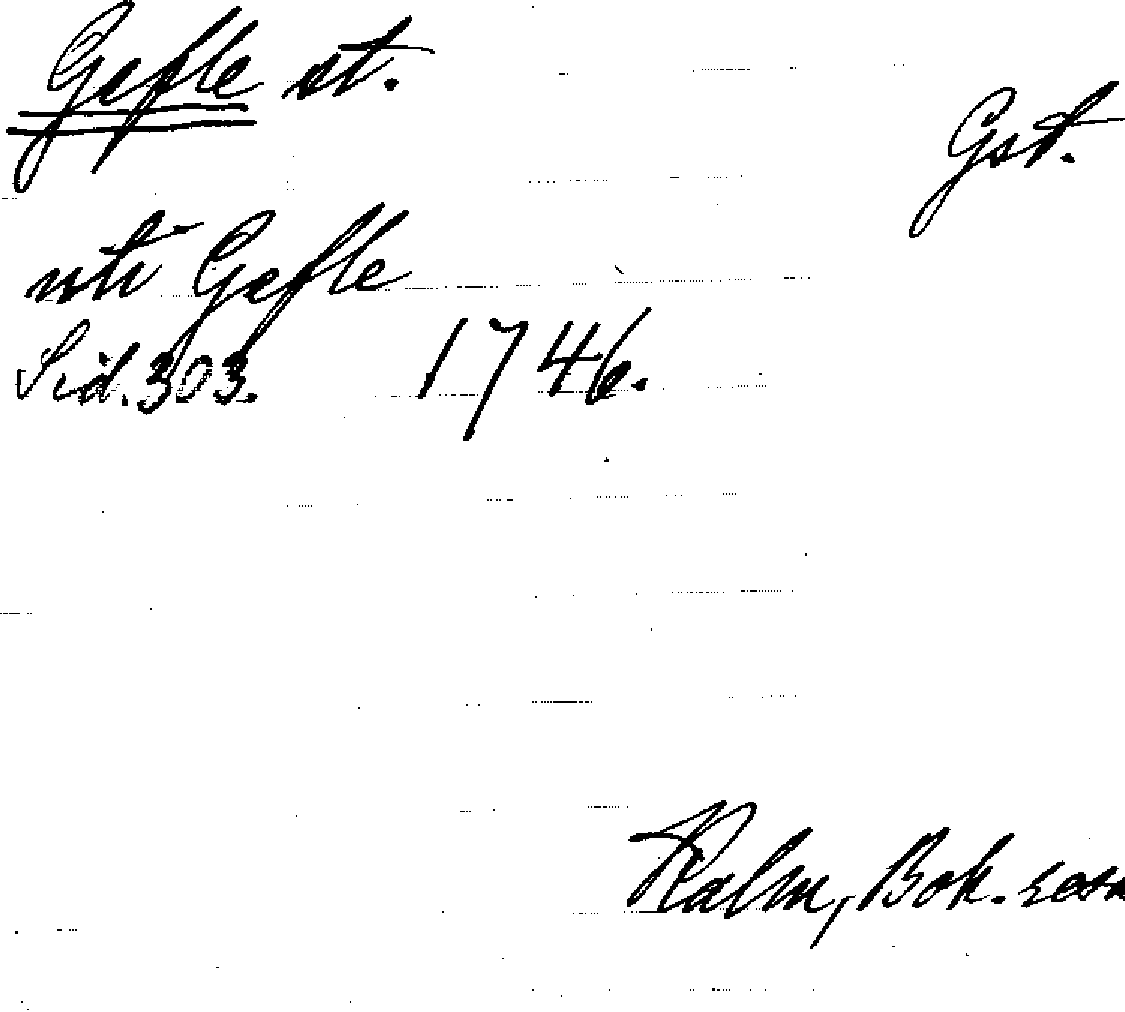 Gefle st.
Gst.
uti Gefle
Sid. 303. 1746.
Kalm, Boh. resa